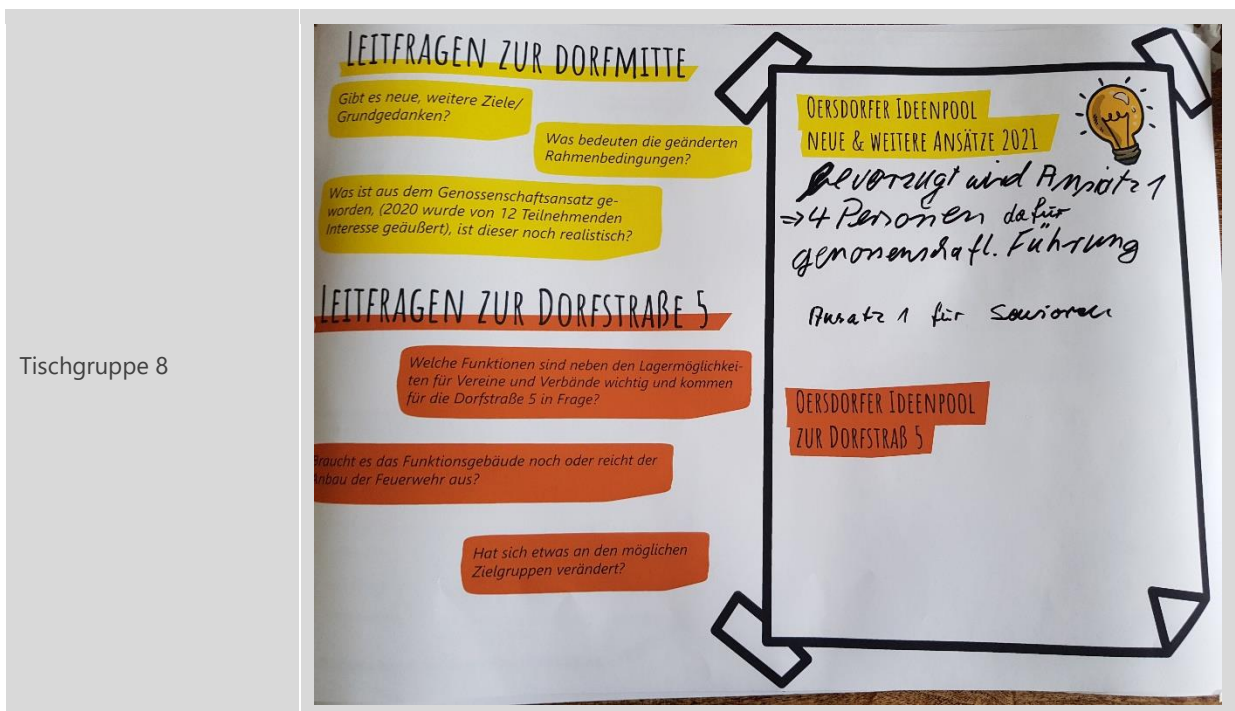 Tischgruppe 8
LEITFRAGEN ZUR DORFMITTE
Gibt es neue, weitere Ziele/
Grundgedanken?
Was bedeuten die geänderten
Rahmenbedingungen?
Was ist aus dem Genossenschaftsansatz ge-
worden, (2020 wurde von 12 Teilnehmenden
Interesse geäußert), ist dieser noch realistisch?
LEITFRAGEN ZUR DORFSTRAßE 5
Welche Funktionen sind neben den Lagermöglichkei-
ten für Vereine und Verbände wichtig und kommen
für die Dorfstraße 5 in Frage?
Braucht es das Funktionsgebäude noch oder reicht der
Anbau der Feuerwehr aus?
Hat sich etwas an den möglichen
Zielgruppen verändert?
OERSDORFER IDEENPOOL
NEUE & WEITERE ANSÄTZE 2021
Bevorzugt wird Ansatz 1
⇒ 4 Personen dafür
genossenschaftl. Führung
Ansatz 1 für Senioren
OERSDORFER IDEENPOOL
ZUR DORFSTRAß 5